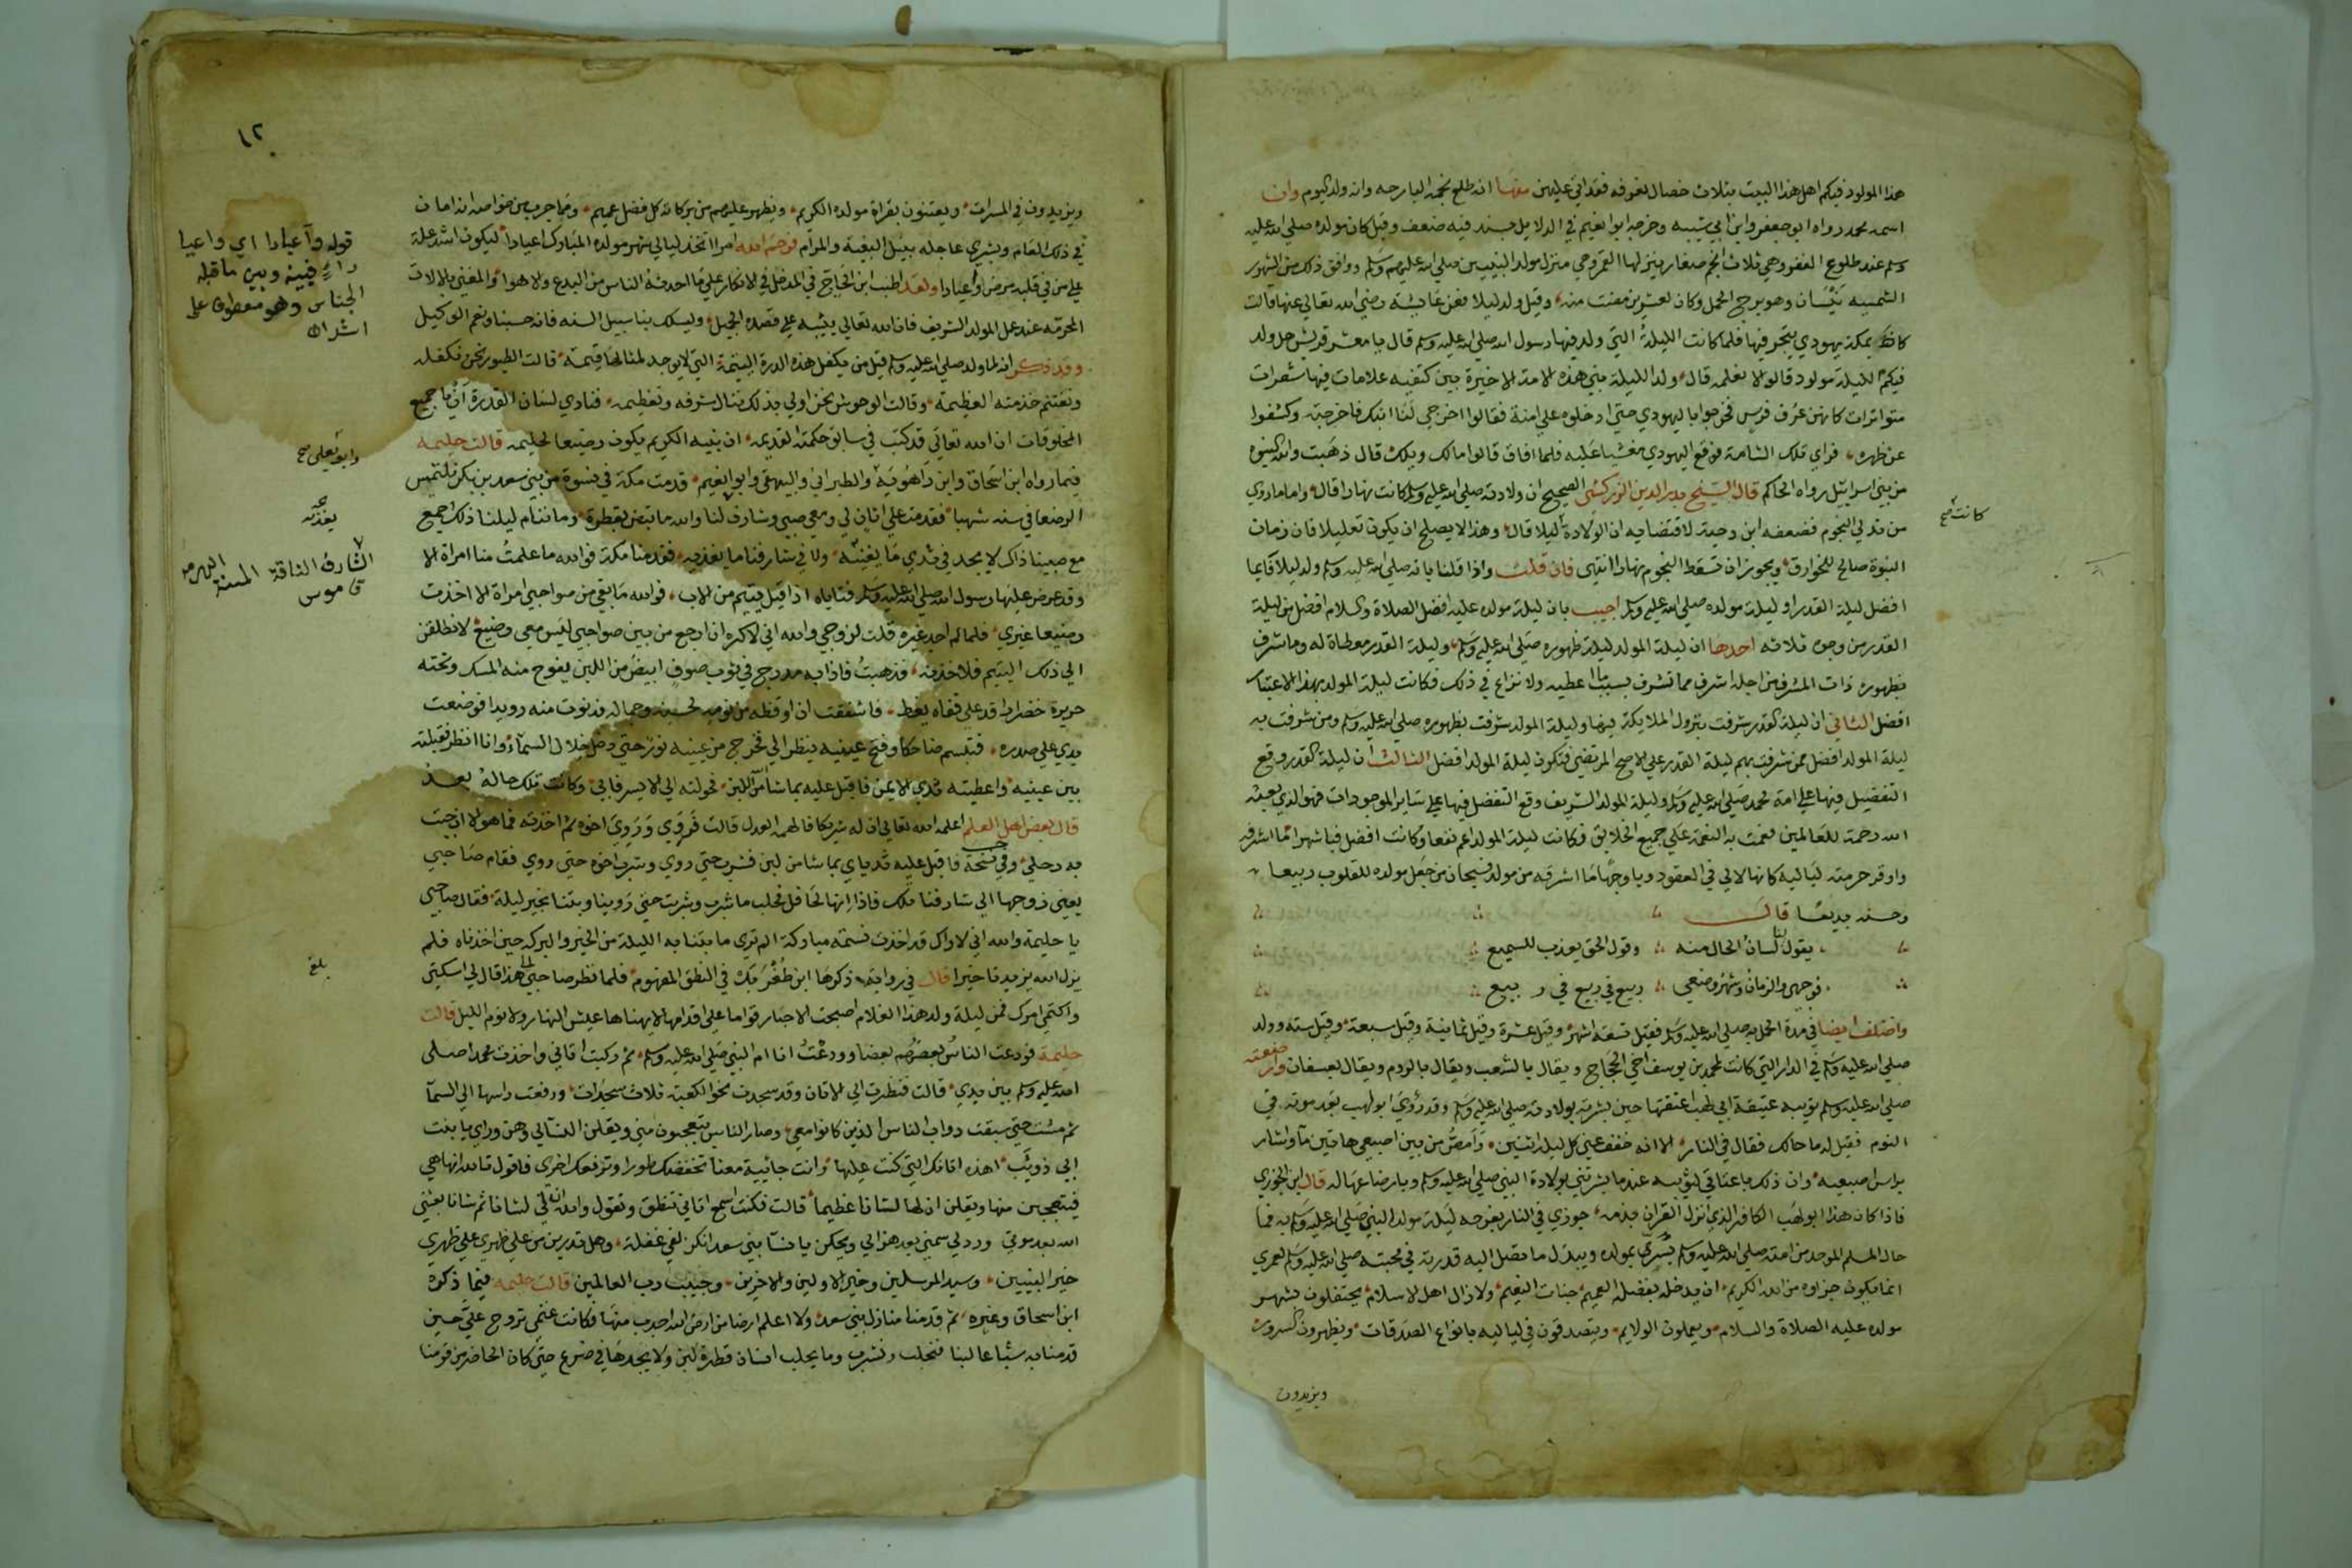 هذا المولود فيكم اهل هذا البيت بثلاث خصال نعرفه فقد اتى عليهن منها انه طلع نجمه البارحه وانه ولد اليوم وان
اسمه محمد رواه ابو جعفر وابن ابي شيبه وخرجه ابو نعيم في الدلايل بسند فيه ضعف وقيل كان مولده صلى الله عليه
وسلم عند طلوع الغفر وهي ثلاث انجم صغار ينزلها القمر وهي منزل مولد النبيين صلى الله عليهم وسلم ووافق ذلك من الشهور
الشمسيه نيسان وهو برج الحمل وكان لعشرين مضت منه وقيل ولد ليلا فعن عايشه رضي الله تعالى عنها قالت
كان بمكة يهودي يتجر فيها فلما كانت الليلة التي ولد فيها رسول الله صلى الله عليه وسلم قال يا معشر قريش هل ولد
فيكم الليلة مولود قالوا لا نعلمه قال ولد الليلة نبي هذه الامة الاخيرة بين كتفيه علامات فيها شعرات
متواترات كانهن عرف فرس فخرجوا باليهودي حتى ادخلوه على امنة فقالوا اخرجي لنا ابنك فاخرجته وكشفوا
عن ظهره فراي تلك الشامة فوقع اليهودي مغشيا عليه فلما افاق قالوا مالك ويلك قال ذهبت والله النبوه
من بني اسراييل رواه الحاكم قال الشيخ بدر الدين الزركشي الصحيح ان ولادته صلى الله عليه وسلم كانت نهارا قال واما ما روي
من تدلي النجوم فضعفه ابن دحية لاقتضايه ان الولادة ليلا قال وهذا لا يصلح ان يكون تعليلا فان زمان
كانت صح
النبوة صالح للخوارق ويجوز ان تسقط النجوم نهارا انتهى فان قلت واذا قلنا بانه صلى الله عليه وسلم ولد ليلا فايما
افضل ليلة القدر او ليلة مولده صلى الله عليه وسلم اجيب بان ليلة مولده عليه افضل الصلاة والسلام افضل من ليلة
القدر من وجوه ثلاثه احدها ان ليلة المولد ليلة ظهوره صلى الله عليه وسلم وليلة القدر معطاة له وما شرف
بظهوره ذات المشرف من اجله اشرف مما تشرف بسبب ما اعطيه ولا نزاع في ذلك فكانت ليلة المولد بهذا الاعتبار
افضل الثاني ان ليلة القدر شرفت بنزول الملايكة فيها وليلة المولد شرفت بظهوره صلى الله عليه وسلم ومن شرفت به
ليلة المولد افضل ممن شرفت بهم ليلة القدر على الاصح المرتضى فتكون ليلة المولد افضل الثالث ان ليلة القدر وقع
التفضيل فيها على امة محمد صلى الله عليه وسلم وليلة المولد الشريف وقع التفضل فيها على ساير الموجودات فهو الذي بعثه
الله رحمة للعالمين فعمت به النعمة على جميع الخلايق فكانت ليلة المولد اعم نفعا وكانت افضل فيا شهرا ما اشرفه
واوفر حرمة لياليه كانها لالي في العقود ويا وجها ما اشرقه من مولد فسبحان من جعل مولده للقلوب ربيعا
وحسنه بديعا قال
يقول لنا لسان الحال منه وقول الحق يعذب للسميع
فوجهي والزمان وشهر وضعي ربيع في ربيع في ربيع
واختلف ايضا في مدة الحمل به صلى الله عليه وسلم فقيل تسعة اشهر وقيل عشرة وقيل ثمانية وقيل سبعة وقيل سته وولد
صلى الله عليه وسلم في الدار التي كانت لمحمد بن يوسف اخي الحجاج ويقال بالشعب ويقال بالردم ويقال بعسفان وارضعته
صلى الله عليه وسلم ثويبه عتيقة ابي لهب اعتقها حين بشرته بولادته صلى الله عليه وسلم وقد رؤي ابو لهب بعد موته في
النوم فقيل له ما حالك فقال في النار الا انه خفف عني كل ليلة اثنين وامص من بين اصبعي هاتين ماء واشار
براس اصبعيه وان ذلك باعتاقي لثويبه عندما بشرتني بولادة النبي صلى الله عليه وسلم وبارضاعها له قال ابن الجوزي
فاذا كان هذا ابو لهب الكافر الذي انزل القران بذمه جوزي في النار بفرحه ليلة مولد النبي صلى الله عليه وسلم به فما
حال المسلم الموحد من امته صلى الله عليه وسلم يسر بمولده ويبذل ما تصل اليه قدرته في محبته صلى الله عليه وسلم لعمري
انما يكون جزاوه من الله الكريم ان يدخله بفضله العميم جنات النعيم ولا زال اهل الاسلام يحتفلون بشهر
مولده عليه الصلاة والسلام ويعملون الولايم ويتصدقون في لياليه بانواع الصدقات ويظهرون السرور
ويزيدون
١٢
ويزيدون في المسرات ويعتنون بقراة مولده الكريم ويظهر عليهم من بركاته كل فضل عميم ومما جرب من خواصه انه امان
في ذلك العام وبشرى عاجله بنيل البغية والمرام فرحم الله امرا اتخذ ليالي شهر مولده المبارك اعيادا ليكون اشد علة
على من في قلبه مرض واعيادا ولقد اطنب ابن الحاج في المدخل في الانكار على ما احدثه الناس من البدع والاهوا والغنى بالالات
المحرمة عند عمل المولد الشريف فالله تعالى يثيبه على قصده الجميل ويسلك بنا سبيل السنه فانه حسبنا ونعم الوكيل
قوله وأعيادا اي واعيا
داء فبينه وبين ما قبله
الجناس وهو معطوف على
اشد اه
وقد ذكر انه لما ولد صلى الله عليه وسلم قيل من يكفل هذه الدرة اليتيمة التي لا يوجد لمثالها قيمة قالت الطيور نحن نكفله
ونغتنم خدمته العظيمة وقالت الوحوش نحن اولى بذلك ننال شرفه وتعظيمه فنادى لسان القدرة ان يا جميع
المخلوقات ان الله تعالى قد كتب في سابق حكمته القديمه ان نبيه الكريم يكون رضيعا لحليمه قالت حليمه
وابو يعلى صح
فيما رواه ابن اسحاق وابن راهويه والطبراني والبيهقي وابو نعيم قدمت مكة في نسوة من بني سعد بن بكر نلتمس
الرضعا في سنه شهبا فقدمت على اتان لي ومعي صبي وشارف لنا والله ما تبض بقطرة وما ننام ليلنا ذلك اجمع
مع صبينا ذاك لا يجد في ثديي ما يغنيه ولا في شارفنا ما يغذيه فقدمنا مكة فوالله ما علمت منا امراة الا
الشارف الناقة المسنة الهرمه
قاموس
وقد عرض عليها رسول الله صلى الله عليه وسلم فتاباه اذا قيل يتيم من الاب فوالله ما بقي من صواحبي امراة الا اخذت
رضيعا غيري فلما لم اجد غيره قلت لزوجي والله اني لاكره ان ارجع من بين صواحبي ليس معي رضيع لانطلقن
الى ذلك اليتيم فلاخذنه فذهبت فاذا به مدرج في ثوب صوف ابيض من اللبن يفوح منه المسك وتحته
حريرة خضرا راقد على قفاه يغط فاشفقت ان اوقظه من نومه لحسنه وجماله فدنوت منه رويدا فوضعت
يدي على صدره فتبسم ضاحكا وفتح عينيه ينظر الي فخرج من عينيه نور حتى دخل خلال السماء وانا انظر فقبلته
بين عينيه واعطيته ثديي الايمن فاقبل عليه بما شا من اللبن فحولته الى الايسر فابى وكانت تلك حاله بعد
قال بعض اهل العلم اعلمه الله تعالى ان له شريكا فالهمه العدل قالت فروي وروي اخوه ثم اخذته فما هو الا ان جيت
به رحلي وفي نسخة فاقبل عليه ثدياي بما شا من لبن فشرب حتى روي وشرب اخوه حتى روي فقام صاحبي
يعني زوجها الى شارفنا تلك فاذا انها لحافل فحلب ما شرب وشربت حتى روينا وبتنا بخير ليلة فقال صاحبي
يا حليمة والله اني لاراك قد اخذت نسمة مباركة الم تري ما بتنا به الليلة من الخير والبركه حين اخذناه فلم
يزل الله يزيدنا خيرا قال في رواية ذكرها ابن طغر بك في النطق المفهوم فلما نظر صاحبي الى هذا قال لي اسكتي
بلغ
واكتمي امرك فمن ليلة ولد هذا الغلام اصبحت الاحبار قواما على اقدامها لا يهناها عيش النهار ولا نوم الليل قالت
حليمة فودعت الناس بعضهم بعضا وودعت انا ام النبي صلى الله عليه وسلم ثم ركبت اتاني واخذت محمدا صلى
الله عليه وسلم بين يدي قالت فنظرت الى الاتان وقد سجدت نحو الكعبة ثلاث سجدات ورفعت راسها الى السما
ثم مشت حتى سبقت دواب الناس الذين كانوا معي وصار الناس يتعجبون مني ويقلن النسا لي وهن وراي يا بنت
ابي ذويب اهذه اتانك التي كنت عليها وانت جائية معنا تخفضك طورا وترفعك اخرى فاقول تالله انها هي
فيتعجبن منها ويقلن ان لها لشانا عظيما قالت فكنت اسمع اتاني تنطق وتقول والله ان لي لشانا ثم شانا بعثني
الله بعد موتي ورد لي سمني بعد هزالي ويحكن يا نسا بني سعد انكن لفي غفلة وهل تدرين من على ظهري على ظهري
خير النبيين وسيد المرسلين وخير الاولين والاخرين وحبيب رب العالمين قالت حليمه فيما ذكره
ابن اسحاق وغيره ثم قدمنا منازل بني سعد ولا اعلم ارضا من ارض الله اجدب منها فكانت غنمي تروح علي حين
قدمنا به شباعا لبنا فنحلب ونشرب وما يحلب انسان قطرة لبن ولا يجدها في ضرع حتى كان الحاضر من قومنا